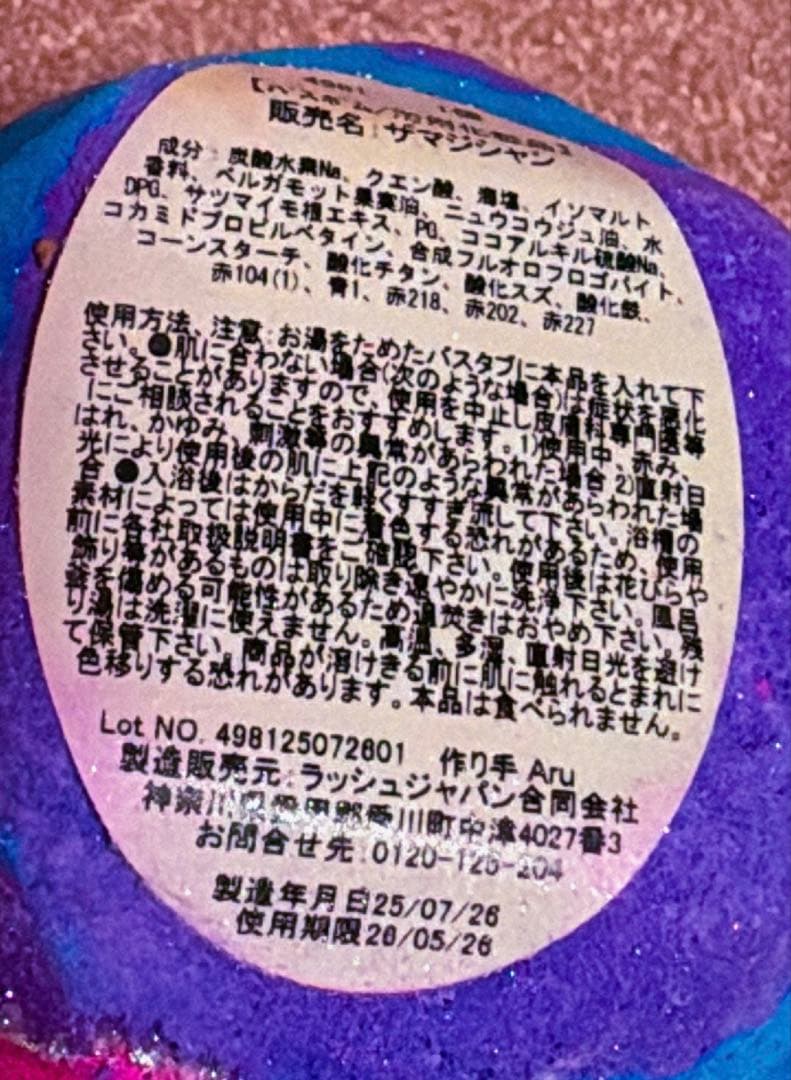 4981
【バスボム/浴用化粧品】
販売名:ザマジシャン
成分:炭酸水素Na、クエン酸、海塩、イソマルト、
香料、ベルガモット果実油、ニュウコウジュ油、水、
DPG、サツマイモ根エキス、PG、ココアルキル硫酸Na、
コカミドプロピルベタイン、合成フルオロフロゴパイト、
コーンスターチ、酸化チタン、酸化スズ、酸化鉄、
赤104(1)、青1、赤218、赤202、赤227
使用方法、注意:お湯をためたバスタブに本品を入れて下
さい。●肌に合わない場合(次のような場合)は症状を悪化
させることがありますので、使用を中止し皮膚科専門医等
にご相談されることをおすすめします。1)使用中、赤み、
はれ、かゆみ、刺激等の異常があらわれた場合 2)直射日
光により使用後の肌に上記のような異常があらわれた場
合 ●入浴後はからだを軽くすすぎ流して下さい。浴槽の
素材によっては使用中に着色する恐れがあるため、使用
前に各社取扱説明書をご確認下さい。使用後は花びらや
飾り等があるものは取り除き速やかに洗浄下さい。風呂
釜を傷める可能性があるため追焚きはおやめ下さい。残
り湯は洗濯に使えません。高温、多湿、直射日光を避け
て保管下さい。商品が溶けきる前に肌に触れるとまれに
色移りする恐れがあります。本品は食べられません。
Lot NO. 498125072601 作り手 Aru
製造販売元:ラッシュジャパン合同会社
神奈川県愛甲郡愛川町中津4027番3
お問合せ先:0120-125-204
製造年月日25/07/26
使用期限26/05/26